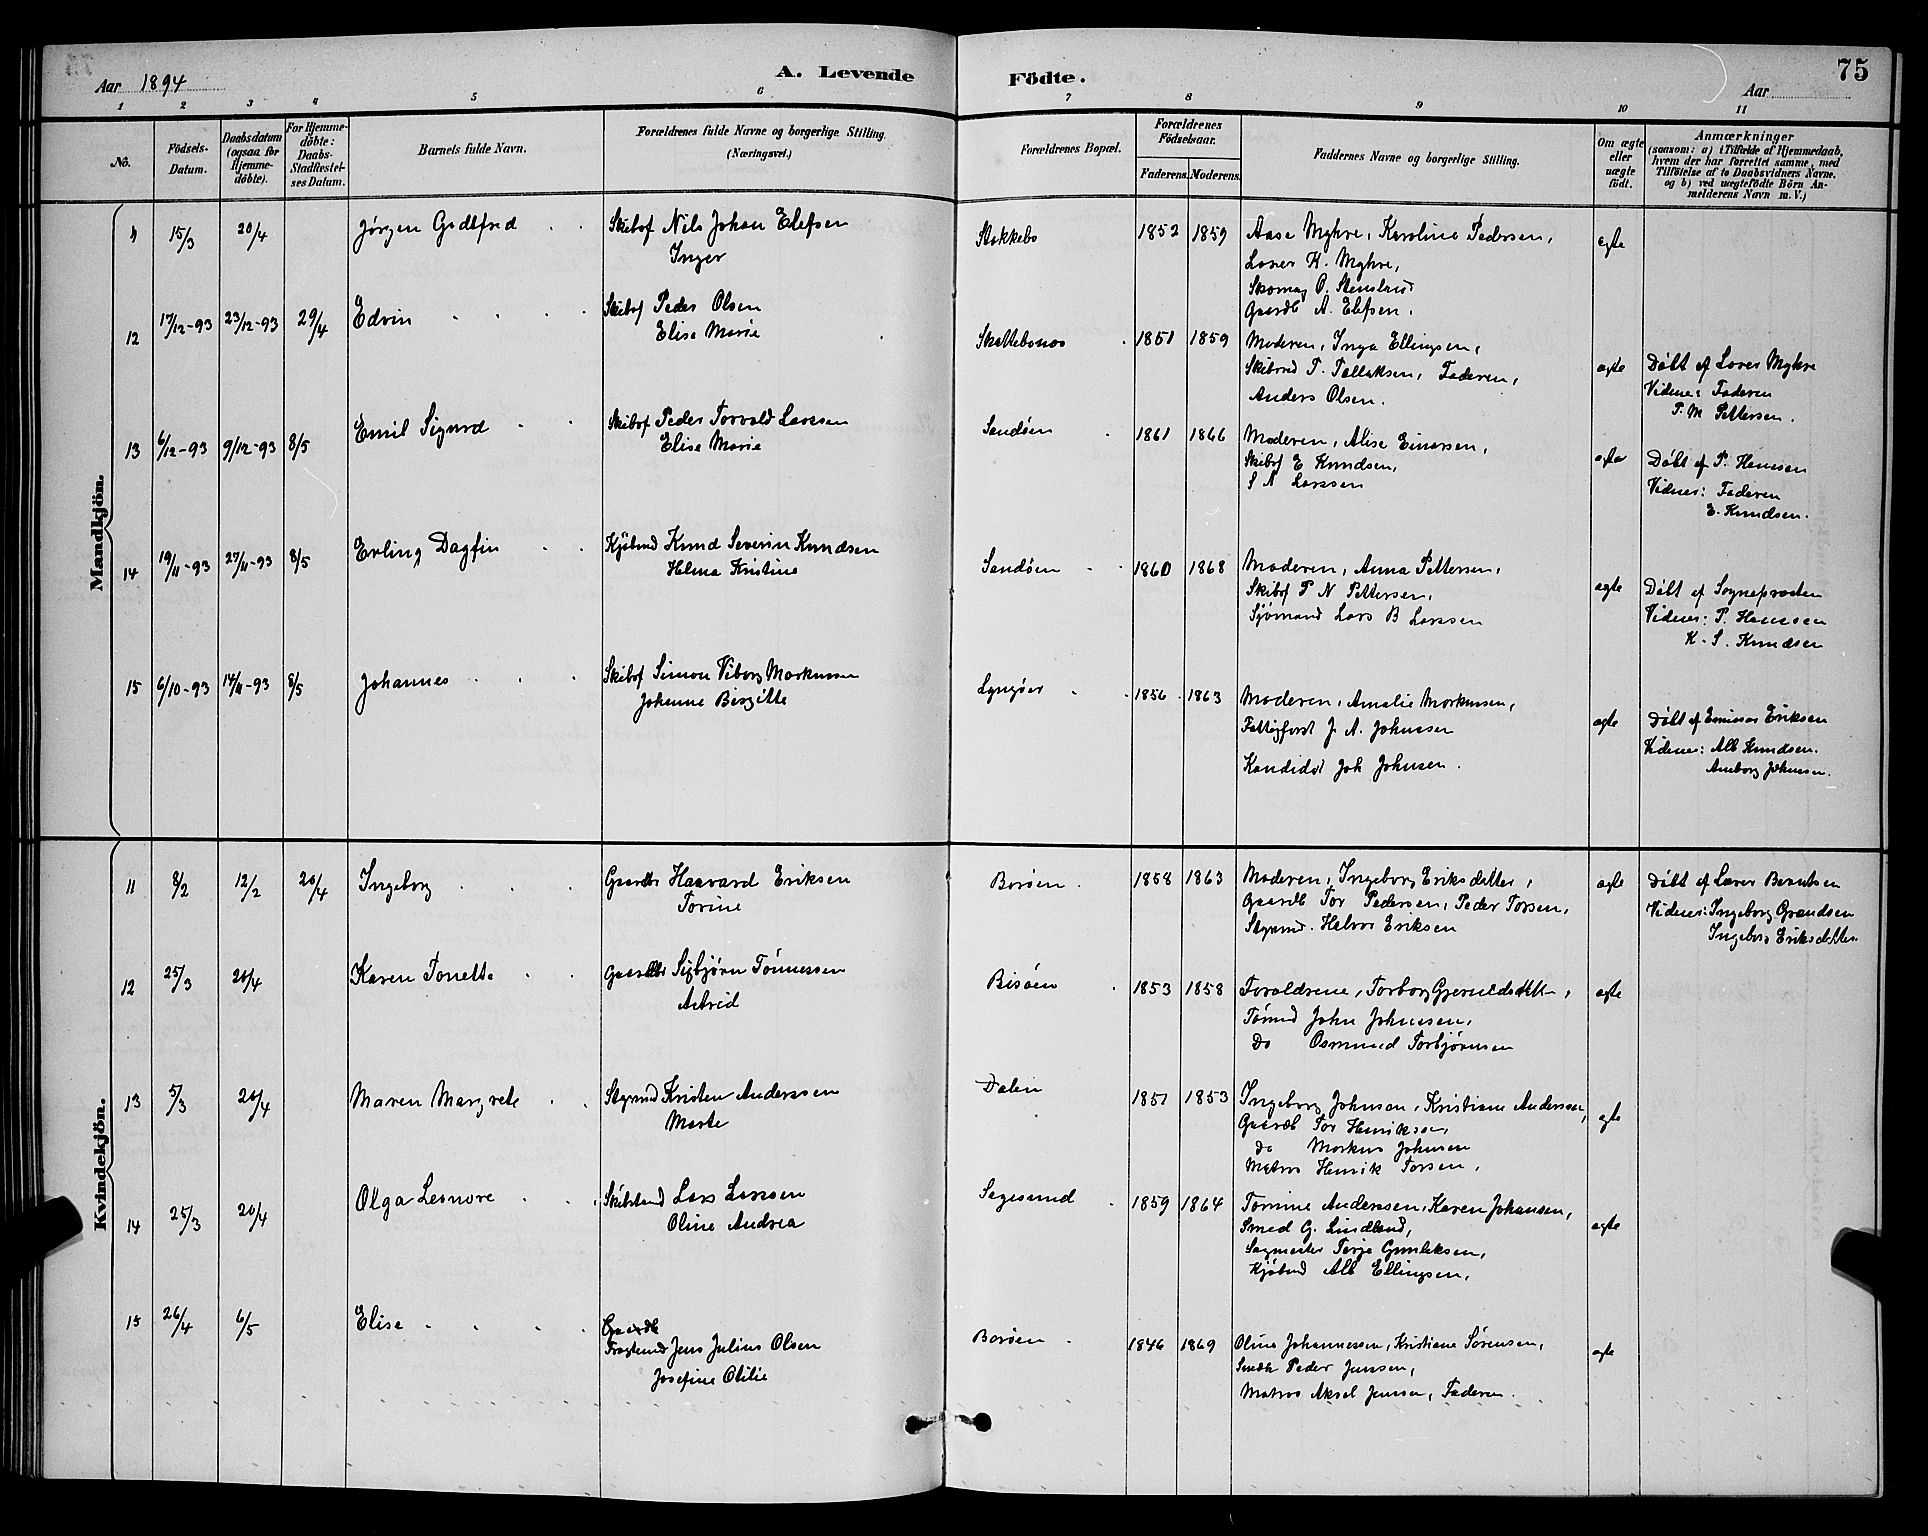 Aar 1894
A. Levende
Födte.
Aar
75
1 2 3 4 5 6 7 8 9 10 11
No.
Födsels-Datum.
Daabsdatum (ogsaa for Hjemme-döbte).
For Hjemme-döbte: Daabs-Stadfæstelses Datum.
Barnets fulde Navn.
Forældrenes fulde Navne og borgerlige Stilling. (Næringsvei.)
Forældrenes Bopæl.
Forældrenes Födselsaar.
Faderens. Moderens.
Faddernes Navne og borgerlige Stilling.
Om ægte eller uægte født.
Anmærkninger
(saasom: a) i Tilfælde af Hjemmedaab, hvem der har forrettet samme, med Tilföielse af to Daabsvidners Navne, og b) ved uægtefödte Börn Anmelderens Navn m. V.)
Mandkjön.
11 15/3 20/4 Jørgen Godtfred
Skibsf Nils Johan Elefsen
Inger
Stokkebo 1852 1859
Aase Myhre, Karoline Pedersen,
Lærer K. Myhre,
Skomag O. Stenstrud
Gaardb A. Elefsen.
egte
12 17/12-93 23/12-93 29/4 Edvin
Skibsf Peder Olsen
Elise Marie
1851 1859
Moderen, Inga Ellingsen,
T. Tallaksen, Faderen,
Anders Olsen.
ægte
Döbt af Lærer Myhre
Vidner: Faderen
P. M Pettersen.
13 6/12-93 9/12-93 8/5 Emil Sigurd
Skibsf Peder Torvald Larssen
Elise Marie
Sandøen 1861 1866
Moderen, Alise Einarsen,
Skibsf E Knudsen,
S N Larssen
ægte
Döbt af P. Hanssen
Vidner: Faderen
E. Knudsen.
14 19/11-93 27/11-93 8/5 Erling Dagfin
Kjøbmd Knud Severin Knudsen
Helma Kristine
Sandøen 1860 1868
Moderen, Anna Pettersen,
Skibsf P N Pettersen,
Sjømand Lars B Larssen
ægte
Döbt af Sognepræsten
Vidner: P. Hanssen
K. S. Knudsen
15 6/10-93 14/11-93 8/5 Johannes
Skibsf Simon Viborg Markussen
Johanne Birgitte
Lyngøer 1856 1863
Moderen, Amalie Markussen,
Fattigforst J. A. Johnsen
Kandidat Joh Johnsen.
ægte
Döbt af Emissær Eriksen
Vidner: Alb Knudsen.
Aneborg Johnsen.
Kvindekjön.
11 8/2 12/2 20/4 Ingeborg
Gaardbr Haavard Eriksen
Torine
Borøen 1858 1863
Moderen, Ingeborg Eriksdatter,
Gaardb Tor Pedersen, Peder Torsen,
Styrmd. Halvor Eriksen
ægte
Döbt af Lærer Berntsen
Vidner: Ingeborg Grændsen
Ingeborg Eriksdatter
12 25/3 20/4 Karen Tonette
Gaardbr Sigbjørn Tønnessen
Astrid
Bisøen 1853 1858
Forældrene, Torborg Gjeruldsdatter,
Tømmd John Johnssen,
Do Osmund Torbjørnsen
ægte
13 5/3 20/4 Maren Margrete
Styrmd Kristen Anderssen
Marte
Dalen 1851 1853
Ingeborg Johnsen, Kristiane Anderssen,
Gaardb Tor Henriksen,
Do Markus Johnsen
Matros Henrik Torsen,
egte
14 25/3 20/4 Olga Leonore
Lars Larssen
Oline Andrea
Sagesund 1859 1864
Tomine Anderssen, Karen Johansen,
Smed G. Lindland,
Sagmester Terje Gunleksen,
Kjøbmd Alb Ellingsen,
ægte
15 26/4 6/5 Elise
Gaardb
Fragtemd Jens Julius Olsen
Josefine Otilie
Borøen 1846 1869
Oline Johannessen, Kristiane Sørensen,
Peder Jenssen,
Matros Aksel Jenssen, Faderen.
ægte